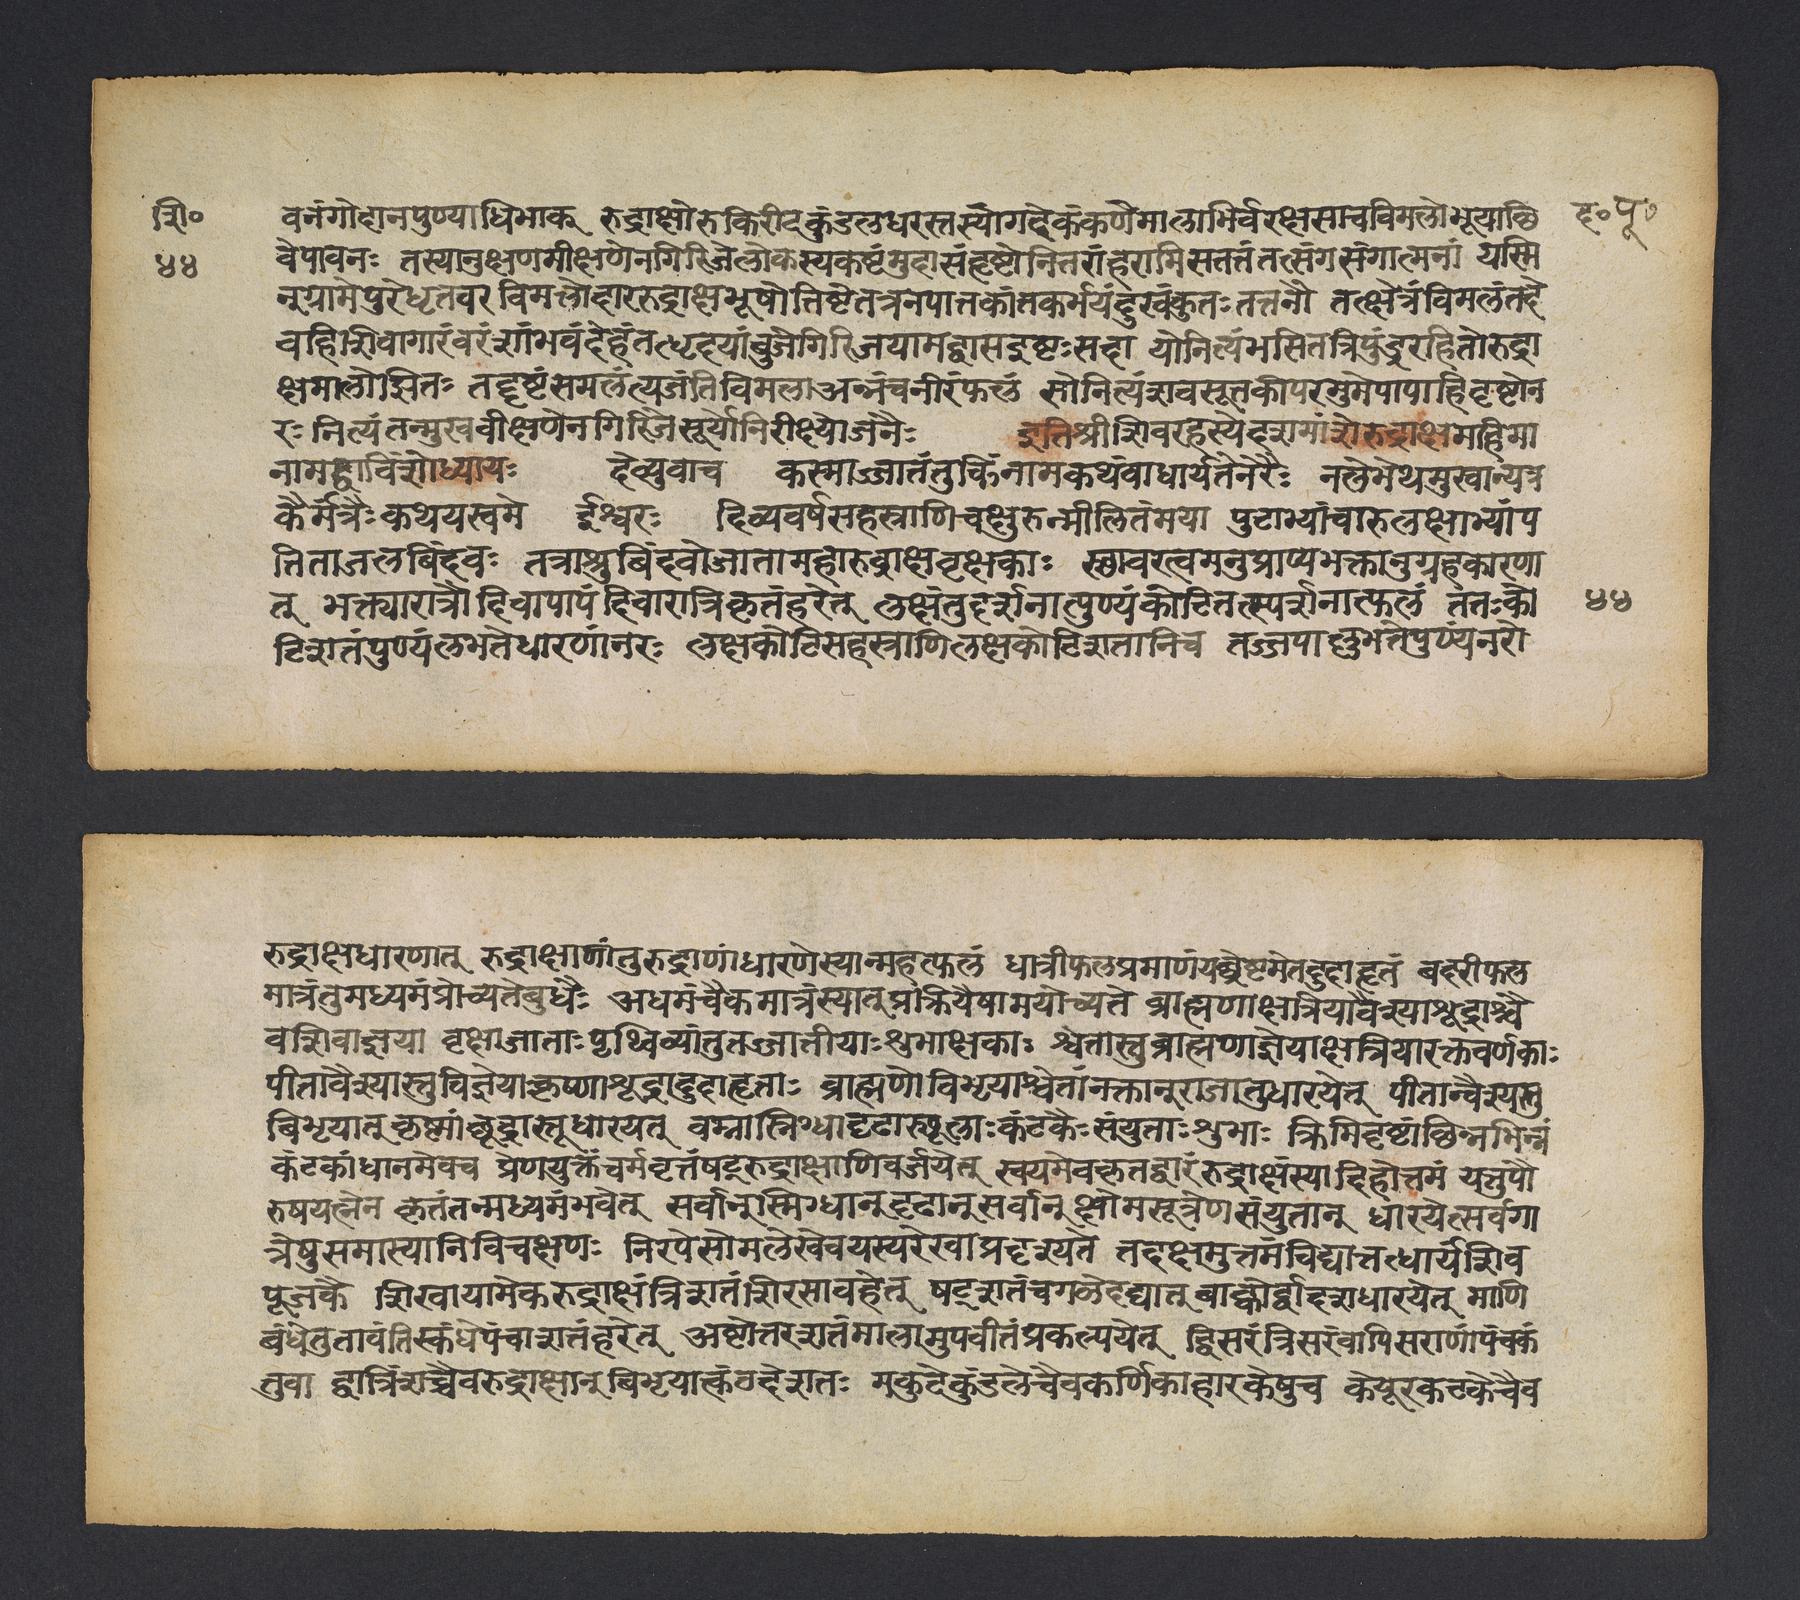 शि॰ वनंगोदानपुण्याधिभाक् रुद्राक्षोरुकिरीटकुंडलधरस्तस्यांगदैकंकणैर्मालाभिर्वरक्षसाचविमलोभूयाछि द॰ पू॰
४४ वेपावनः तस्यानुक्षणमीक्षणेनगिरिजेलोकस्यकष्टंमुदासंहृष्टोनितरांहरामिसततंतत्संगसंगात्मनां यस्मि
न्ग्रामेपुरेधृतवरविमलोहाररुद्राक्षभूषोतिष्टेतत्रनपातकांतकर्भयंदुखंकुतःतत्तनौ तत्क्षेत्रंविमलंतदे
वहिशिवागारंवरंशांभवंदेहंतत्धृहयांबुजेगिरिजयामद्वासदृष्टःसदा योनित्यंभसितत्रिपुंड्ररहितोरुद्रा
क्षमालोझितः तद्दृष्टंसमलंत्यजंतिविमलाअन्नंचनीरंफलं सोनित्यंशवसूतकीपरमुमेपापाहिदृष्टोन
रः नित्यंतन्मुखवीक्षणेनगिरिजेसूर्योनिरीक्ष्योजनैः इतिश्रीशिवरहस्येदशमांशेरुद्राक्षमहिमा
नामद्वाविंशोध्यायः देव्युवाच कस्माज्जातंतुकिंनामकथंवाधार्यतेनरैः नलेभेथमुखान्यत्र
कैर्मंत्रैःकथयस्वमे ईश्वरः दिव्यवर्षसहस्राणिचक्षुरुन्मीलितंमया पुटाभ्यांचारुलक्षाभ्यांप
तिताजलबिंदवः तत्राश्रुबिंदवोजातामहारुद्राक्षवृक्षकाः स्थावरत्वमनुप्राप्यभक्तानुग्रहकारणा
त् भक्त्यारात्रौदिवापापंदिवारात्रिकृतंहरेत् लक्षंतुदर्शनात्पुण्यंकोटितत्स्पर्शनात्फलं ततःको ४४
टिशतंपुण्यंलभतेधारणांनरः लक्षकोटिसहस्राणिलक्षकोटिशतानिच तज्जपाल्लभतेपुण्यंनरो
रुद्राक्षधारणात् रुद्राक्षाणांतुरुद्राणांधारणेस्यान्महत्फलं धात्रीफलप्रमाणंयच्छ्रेष्टमेतदुदाहृतं बदरीफल
मात्रंतुमध्यमंप्रोच्यतेबुधैः अधमंचैकमात्रंस्यात्प्रक्रियैषामयोच्यते ब्राह्मणाक्षत्रियावैश्याशूद्राश्चै
वशिवाज्ञया वृक्षाजाताःपृथिव्यांतुतज्जातीयाःशुभाक्षकाः श्वेतास्तुब्राह्मणाज्ञेयाक्षत्रियारक्तवर्णकाः
पीतावैश्यास्तुविज्ञेयाकृष्णाशूद्राहुदाहृताः ब्राह्मणोविभृयाश्वेतांनक्तान्राजातुधारयेत् पीतान्वैश्यस्तु
बिभृयात् कृष्णांछूद्रास्तूधारयत् वम्नास्निग्धादृढास्थूलाःकंटकैःसंयुताःशुभाः क्रिमिदृष्टांछिन्नभिन्नं
कंटकांधानमेवच व्रेणयुक्तंचर्मवृत्तंषट्रुद्राक्षाणिवर्जयेत् स्वयमेवकृतद्वारंरुद्राक्षंस्यादिहोत्तमं यत्तुपौ
रुषयत्नेन कृतंतन्मध्यमंभवेत् सर्वान्स्निग्धान्दृढान्सर्वान्क्षौमसूत्रेणसंयुतान् धारयेत्सर्वगा
त्रेषुसमास्यानिविचक्षणः निरपेसोमलेखेवयस्यरेखाप्रदृश्यते तदक्षमुत्तमंविद्यात्तत्धार्यंशिव
पूजकै शिखायामेकरुद्राक्षंत्रिशतंशिरसावहेत् षट्शतंचगळेदद्यात् बाह्वोर्द्वादशधारयेत् माणि
बंधेतुतावंतिस्कंधेपंचाशतंहरेत् अष्टोत्तरशतंमालामुपवीतंप्रकल्पयेत् द्विसरंत्रिसरंवापिसराणांपंचकं
तुवा द्वात्रिंशच्चैवरुद्राक्षान् बिभृयात्कंठदेशतः मकुटेकुंडलेचैवकर्णिकाहारकेषुच केयूरकटकेचैव